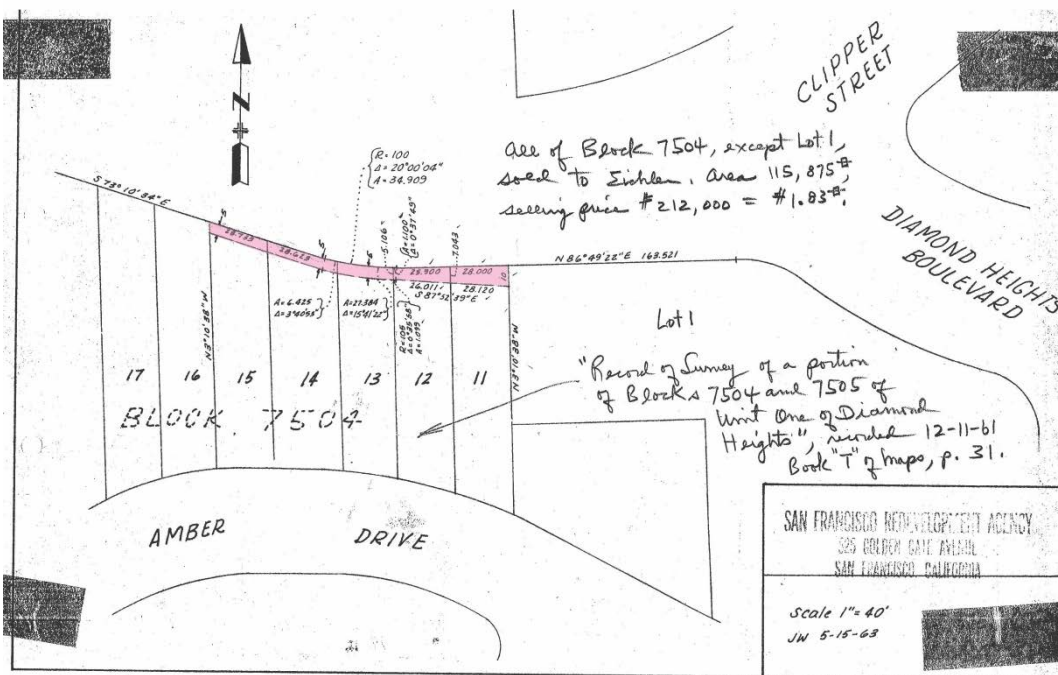 CLIPPER
STREET
All of Block 7504, except Lot 1,
sold to Eichler. Area 115,875#
selling price $212,000 = $1.83#.
DIAMOND HEIGHTS
BOULEVARD
N
R=100
Δ=20°00'04"
A=34.909
S 73°10'34"E
5.106
R=1.100
Δ=0°37'49"
7.043
N 86°49'22"E 163.521
28.733
28.623
25.900
28.000
10
26.011
28.120
S 87°52'39"E
A=6.425
Δ=3°40'55"
A=27.384
Δ=15°41'22"
R=105
Δ=0°35'58"
A=1.099
N3°10'38"W
N3°10'38"W
Lot 1
17
16
15
14
13
12
11
BLOCK 7504
"Record of Survey of a portion
of Blocks 7504 and 7505 of
Unit One of Diamond
Heights", recorded 12-11-61
Book "T" of Maps, p. 31.
AMBER DRIVE
SAN FRANCISCO REDEVELOPMENT AGENCY
525 GOLDEN GATE AVENUE
SAN FRANCISCO, CALIFORNIA
Scale 1"=40'
JW 5-15-63